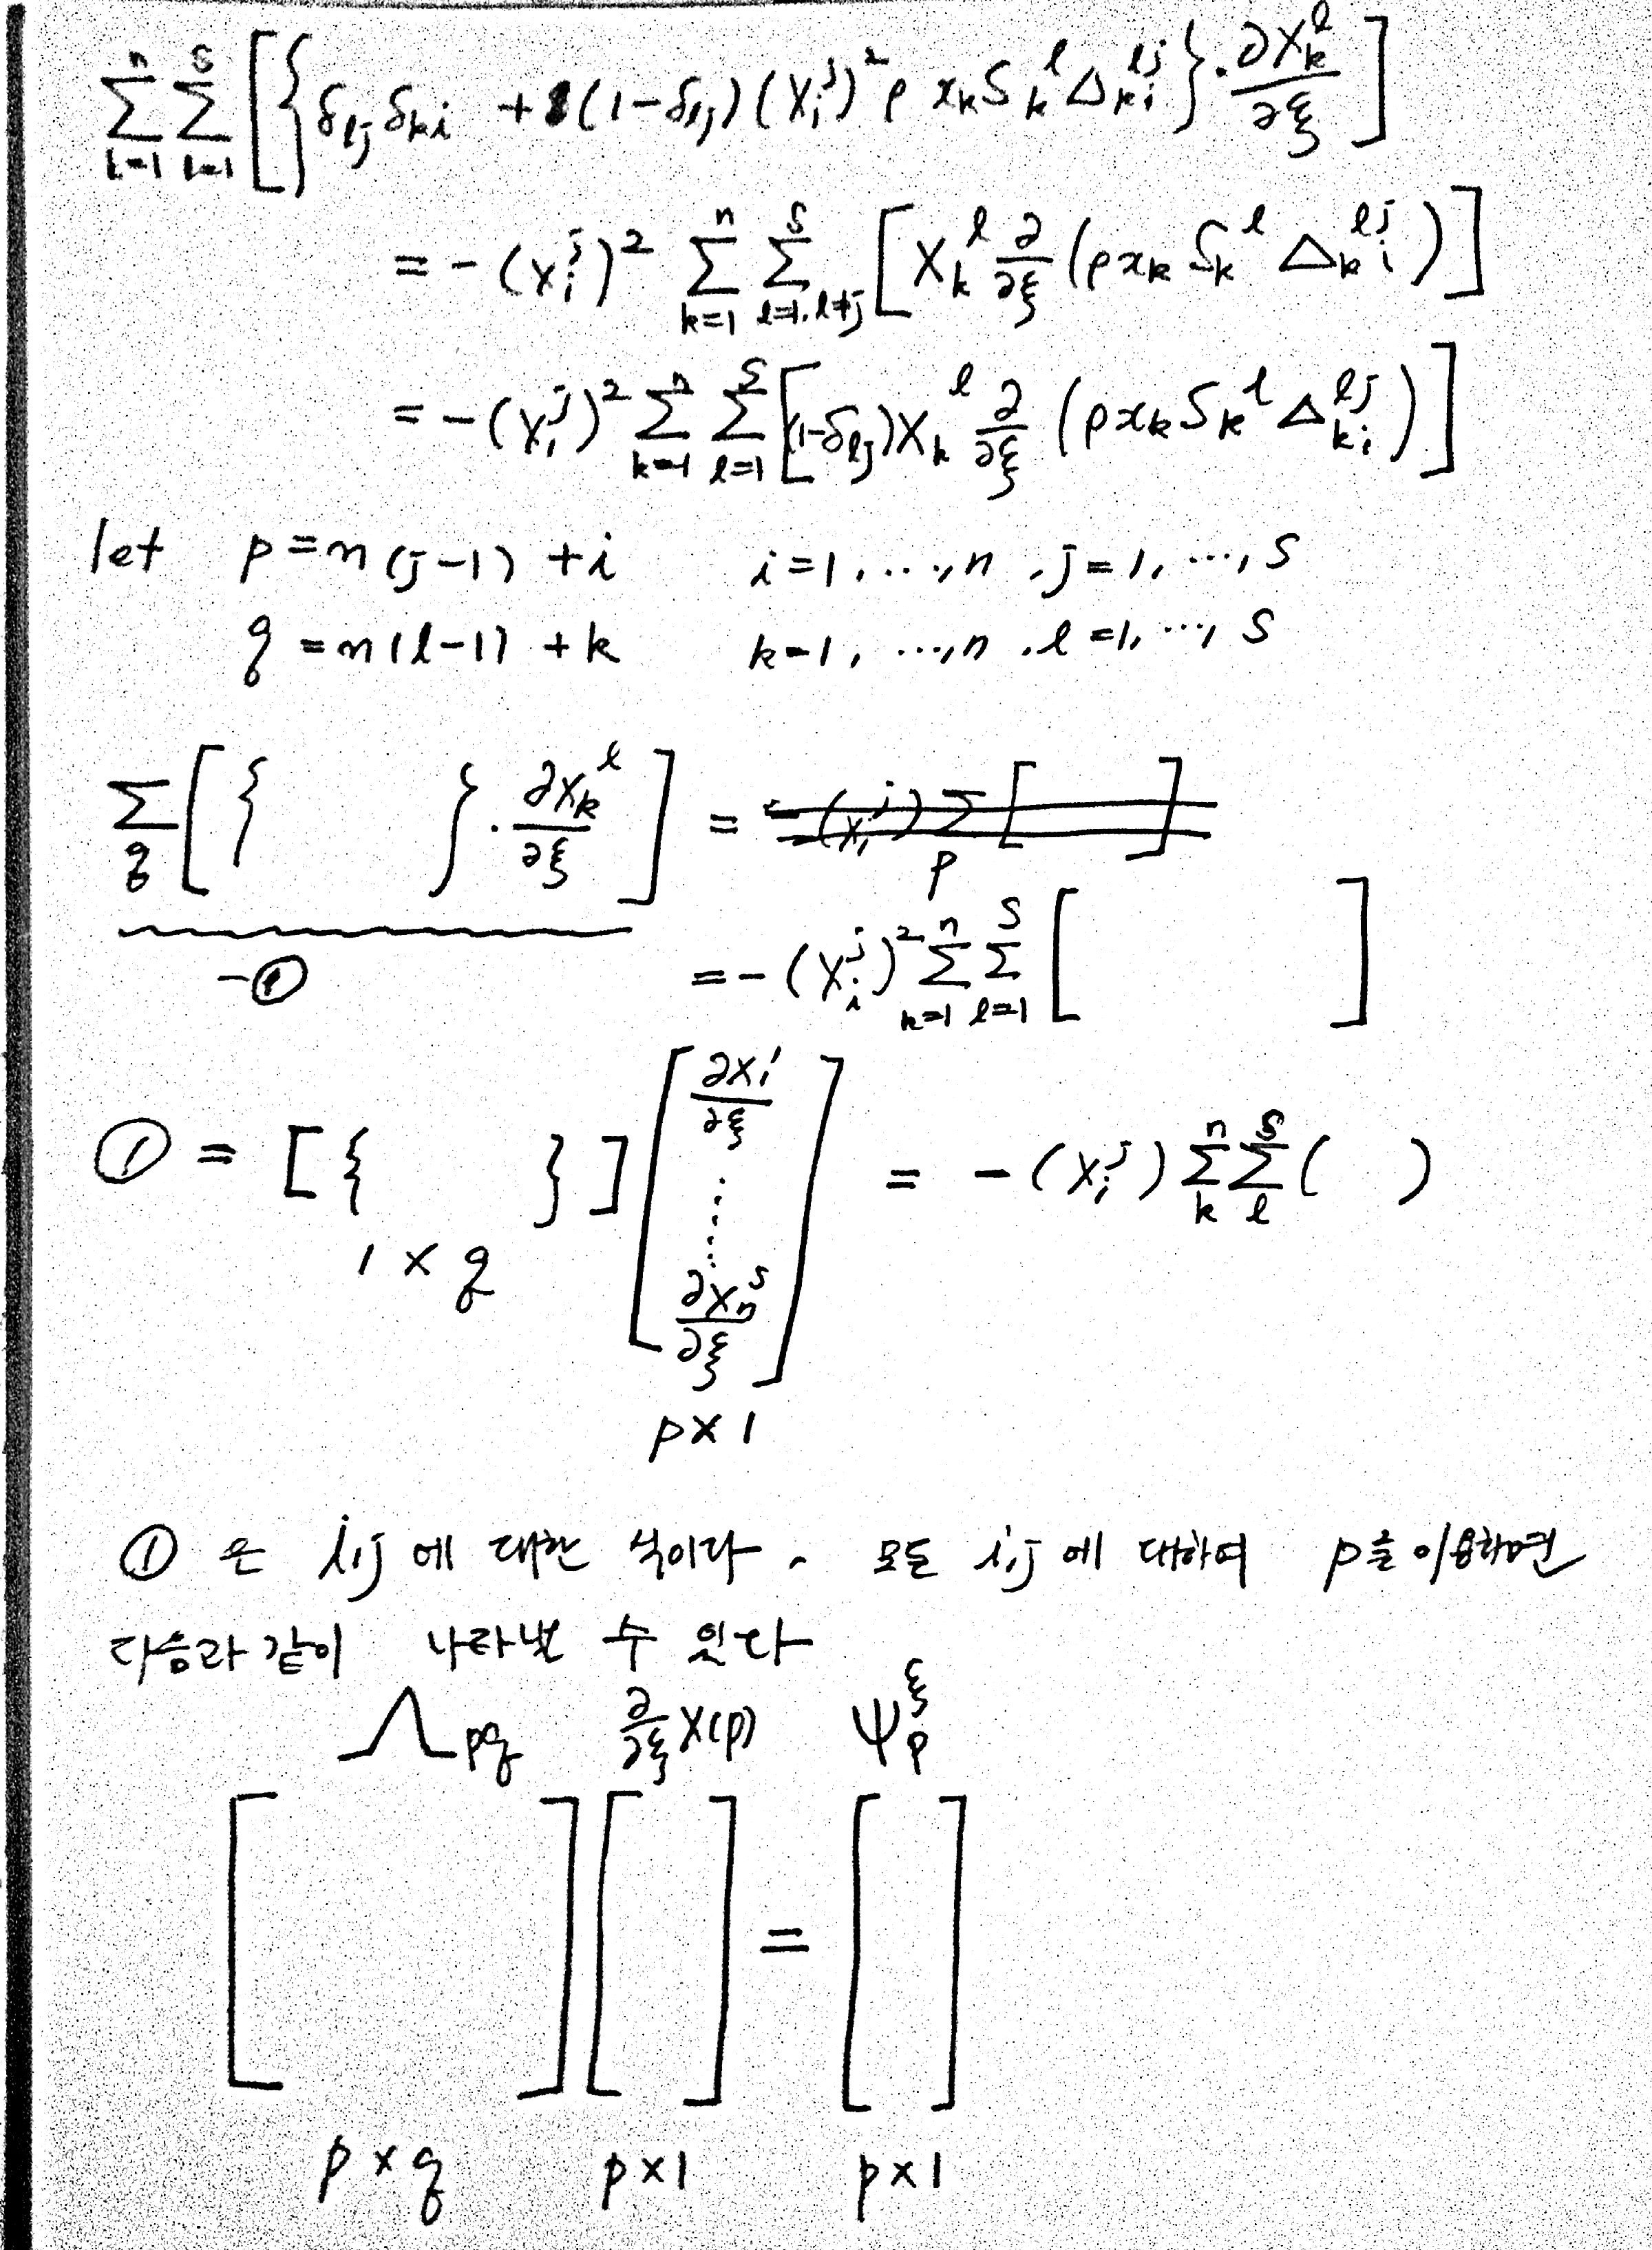 \sum_{k=1}^{n} \sum_{l=1}^{s} [ { δ_{lj} δ_{ki} + (1-δ_{lj}) (X_i^j)^2 ρ x_k S_k^l Δ_{ki}^{lj} } · ∂X_k^l/∂ξ ]
= - (X_i^j)^2 \sum_{k=1}^{n} \sum_{l=1, l≠j}^{s} [ X_k^l ∂/∂ξ (ρ x_k S_k^l Δ_{ki}^{lj}) ]
= - (X_i^j)^2 \sum_{k=1}^{n} \sum_{l=1}^{s} [ (1-δ_{lj}) X_k^l ∂/∂ξ (ρ x_k S_k^l Δ_{ki}^{lj}) ]
let p = n(j-1) + i   i=1, ..., n, j=1, ..., s
q = n(l-1) + k   k=1, ..., n, l=1, ..., s
\sum_q [ {   } · ∂X_k^l/∂ξ ] = -(X_i^j) \sum_p [   ]
-① = - (X_i^j)^2 \sum_{k=1}^{n} \sum_{l=1}^{s} [   ]
① = [ {   } ] [ ∂X_1^1/∂ξ ... ∂X_n^s/∂ξ ] = - (X_i^j) \sum_k^n \sum_l^s (   )
1 × q
p × 1
① 은 i,j 에 대한 식이다. 모든 i,j 에 대하여 p를 이용하면
다음과 같이 나타낼 수 있다
Λ_{pq}   ∂/∂ξ X(p)   Ψ_p^ξ
[   ] [   ] = [   ]
p × q   p × 1   p × 1